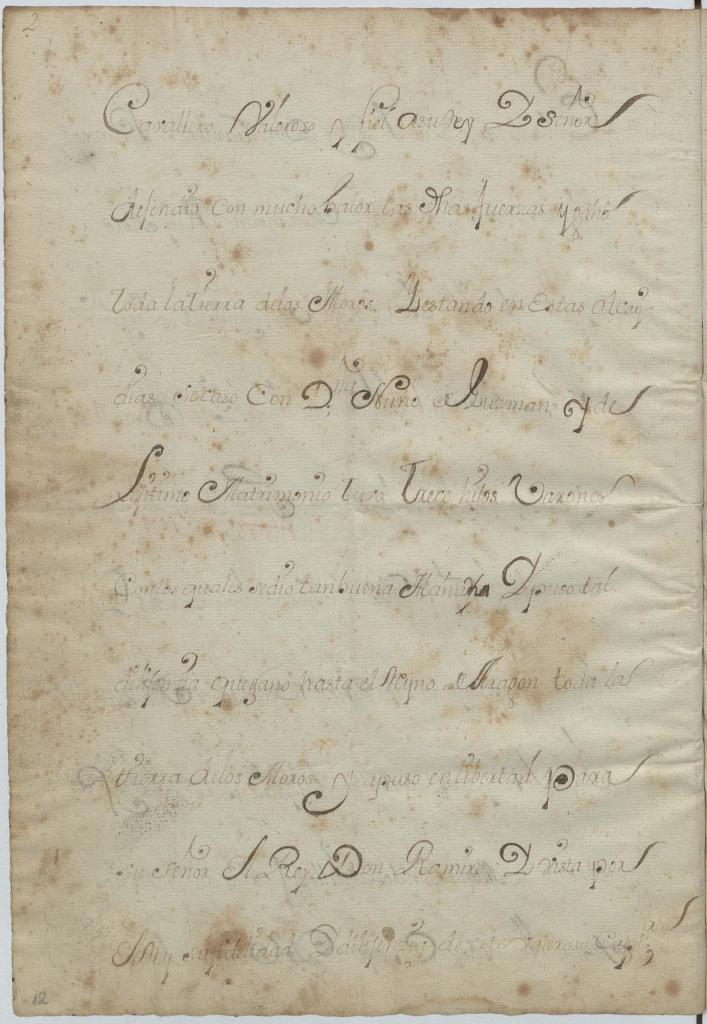 2
Cavallero Valeroso y fiel a su Rey, Y señor
defendio con mucho valor las dhas fuerzas y gano
toda la tierra delos Moros. Y estando en estas Alcay
dias se caso Con D.ña Nuño de Guzman, y de
Matrimonio tuvo Trece hijos Varones
Con los quales se dio tan buena Maña Y puso tal
dilijencia que gano hasta el Reyno de Aragon toda la
tierra delos Moros Y la puso en libertad para
su Señor El Rey Don Ramiro, Y vista por
El Rey su fidelidad Y dilijencia de este valeroso Cap.an
12